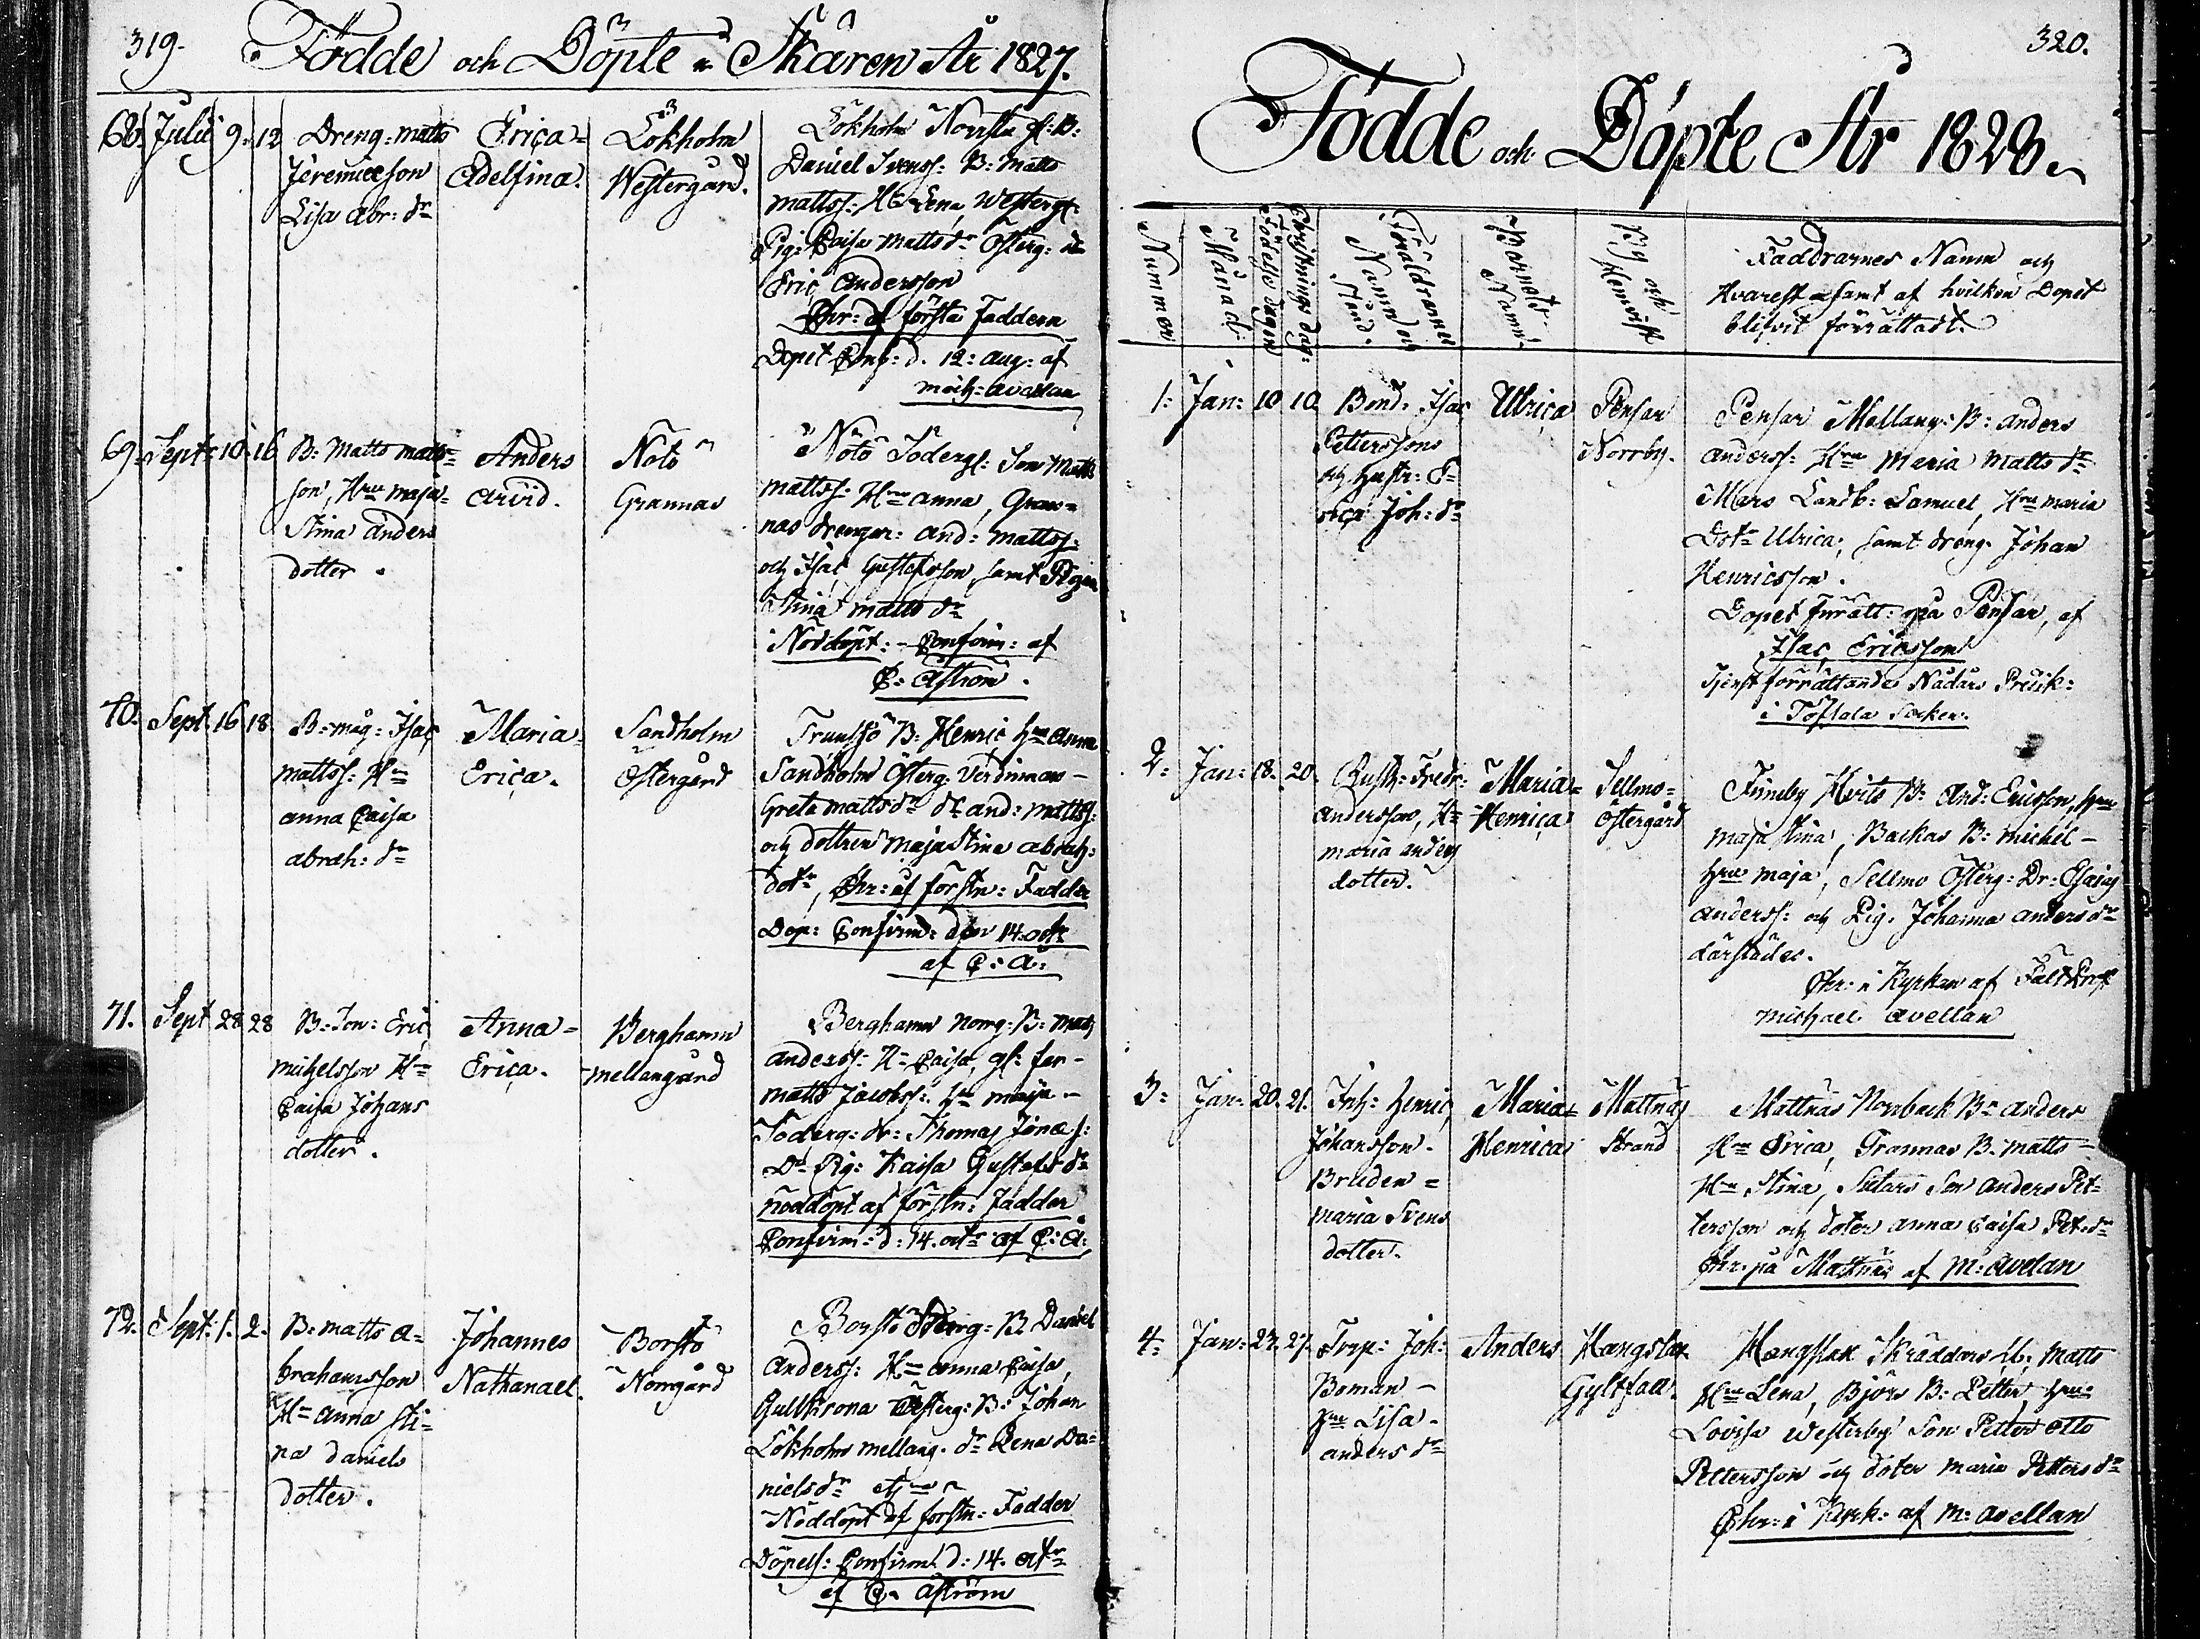 319.
Födde och Döpte i Skären År 1827.
68. Julii 9. 12
Dreng: Matts
Jeremiæson
Lisa Abr: dr
Erica=
Adelfina.
Lökholm
Westergård.
Lökholm Norrsta gl: B:
Daniel Svenss: B: Matts
Mattss: H: Lena, Westergl:
Pig: Caisa Matts dr Österg: dr
Eric Andersson
Chr: af första Faddern
Dopet Conf: d. 12: Aug: af
Mich: Avellan
69. Sept: 10. 16.
B: Matts Matts=
son, Hru Maja=
Stina Anders
dotter.
Anders
Arvid.
Nötö
Grannas
Nötö Södergl: Son Matts
Mattss: Hru Anna, Gran=
nas drenger: And: Mattss:
och Isac Gustafsson, samt Pigan
Stina Matts dr
Nöddöpt: Confirm: af
C: Åström.
70. Sept. 16 18.
B: måg: Isac
Mattss: Hru
Anna Caisa
Abrah: dr
Maria=
Erica.
Sandholm
Östergård
Trunsö B: Henric Hru Anna
Sandholm Österg:
Greta Matts dr dr And: Mattss:
och dottren Maja Stina Abrah:
dotr, Chr: af förstn: Fadder
Dop: Confirm: den 14. octr
af C: A:
71. Sept 28 28
B: Son: Eric
Michelsson Hru
Caisa Johans
dotter.
Anna=
Erica.
Berghamn
Mellangård
Berghamn Norrg: B: Mats
Anderss: H: Caisa, gl: far
Matts Jacobss: Hru Maja
Söderg: dr: Thomas Jonæs:
Do Pig: Kaisa Gustafs dr
Nöddöpt af förstn: Fadder
Confirm: d: 14. octr af C: A:
72. Sept: 1. 2.
B: Matts A=
brahamsson
Hru Anna Sti=
na Daniels
dotter.
Johannes
Nathanael.
Borstö
Norrgård
Borstö Söderg: B: Daniel
Anderss: Hru Anna Caisa,
Gullkrona Österg: B: Johan
Lökholm Mellang. dr Lena Da=
niels dr
Nöddöpt af förstn: Fadder
Dopets: Confirm: d: 14. octr
af C: Åström
320.
Födde och Döpte År 1828.
Nummer
Månad.
Födelse dagen
Christnings dag:
Föräldrarnes
Namn och
Stånd.
Barnets
Namn.
By och
Hemvist
Faddrarnes Namn och
Hvarest samt af hvilken Dopet
blifvit förrättadt.
1. Jan: 10 10
Bond. Isac
Petterssons
och hustr: E=
rica Joh: dr
Ulrica
Pensar
Norrby.
Pensar Mellang: B: Anders
Anderss: Hru Maria Matts dr
Mars Landb: Samuel, Hru Maria
Dotr Ulrica, samt dreng Johan
Henricsson.
Dopet förrätt: på Pensar, af
Isac Ericsson
Tjenstförrättande Nådårs Predik:
i Töfsala Socken.
2. Jan: 18. 20.
Rusth: Fredr:
Andersson, H:
Maria Anders
dotter.
Maria=
Henrica
Sellmo=
Östergård
Finneby Hvits B: And: Ericsson, Hru
Maja Stina, Backas B: Michel
Hru Maja, Sellmo Österg: Dr: Esaias
Anderss: och Pig. Johanna Anders dr
därstädes.
Chr: i Kyrkan af
Michael Avellan
3. Jan: 20. 21.
Inh: Henric
Johansson.
Bruden=
Maria Svens
dotter.
Maria=
Henrica
Mattnäs
Strand
Mattnäs Norrback B: Anders
Hru Erica, Grannas B. Matts
Hru Stina, Sutars Son Anders Pet=
tersson och doter Anna Caisa Pet: dr
Chr: på Mattnäs af M: Avelan
4. Jan: 24. 27.
Torp: Joh:
Boman
Hru Lisa
Anders dr
Anders
Hangslax
Gyltfall.
Hangslax Skräddars Matts
Hru Lena, Björs B: Petter, Hru:
Lovisa Westerby Son Petter Otto
Pettersson och doter Maria Petters dr
Chr: i Kyrk: af M: Avellan